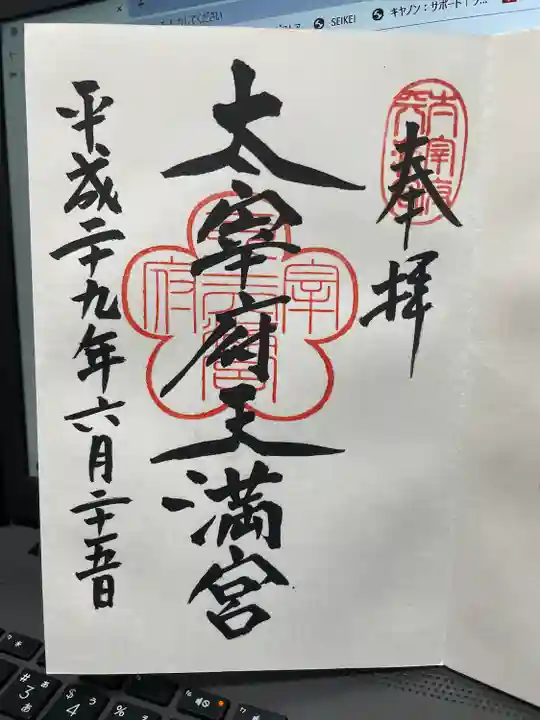 奉拝
太宰府天満宮
平成二十九年六月二十五日
SEIKEI
キヤノン：サポート｜ソ...